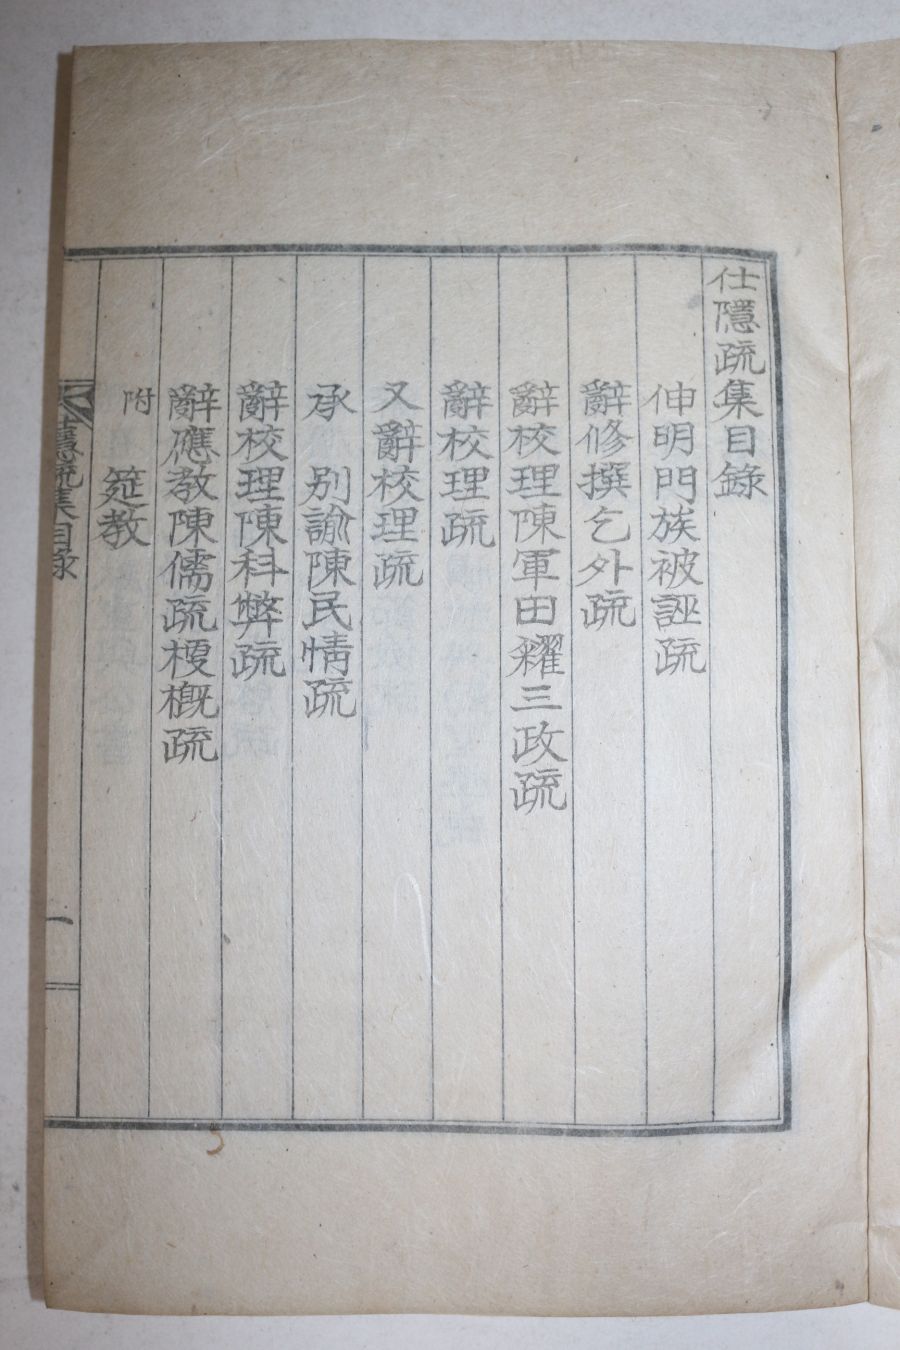 仕隱疏集目錄
伸明門族被誣疏
辭修撰乞外疏
辭校理陳軍田糶三政疏
辭校理疏
又辭校理疏
承 別諭陳民情疏
辭校理陳科弊疏
辭應敎陳儒疏梗槪疏
附 筵敎
隱疏集目錄 一